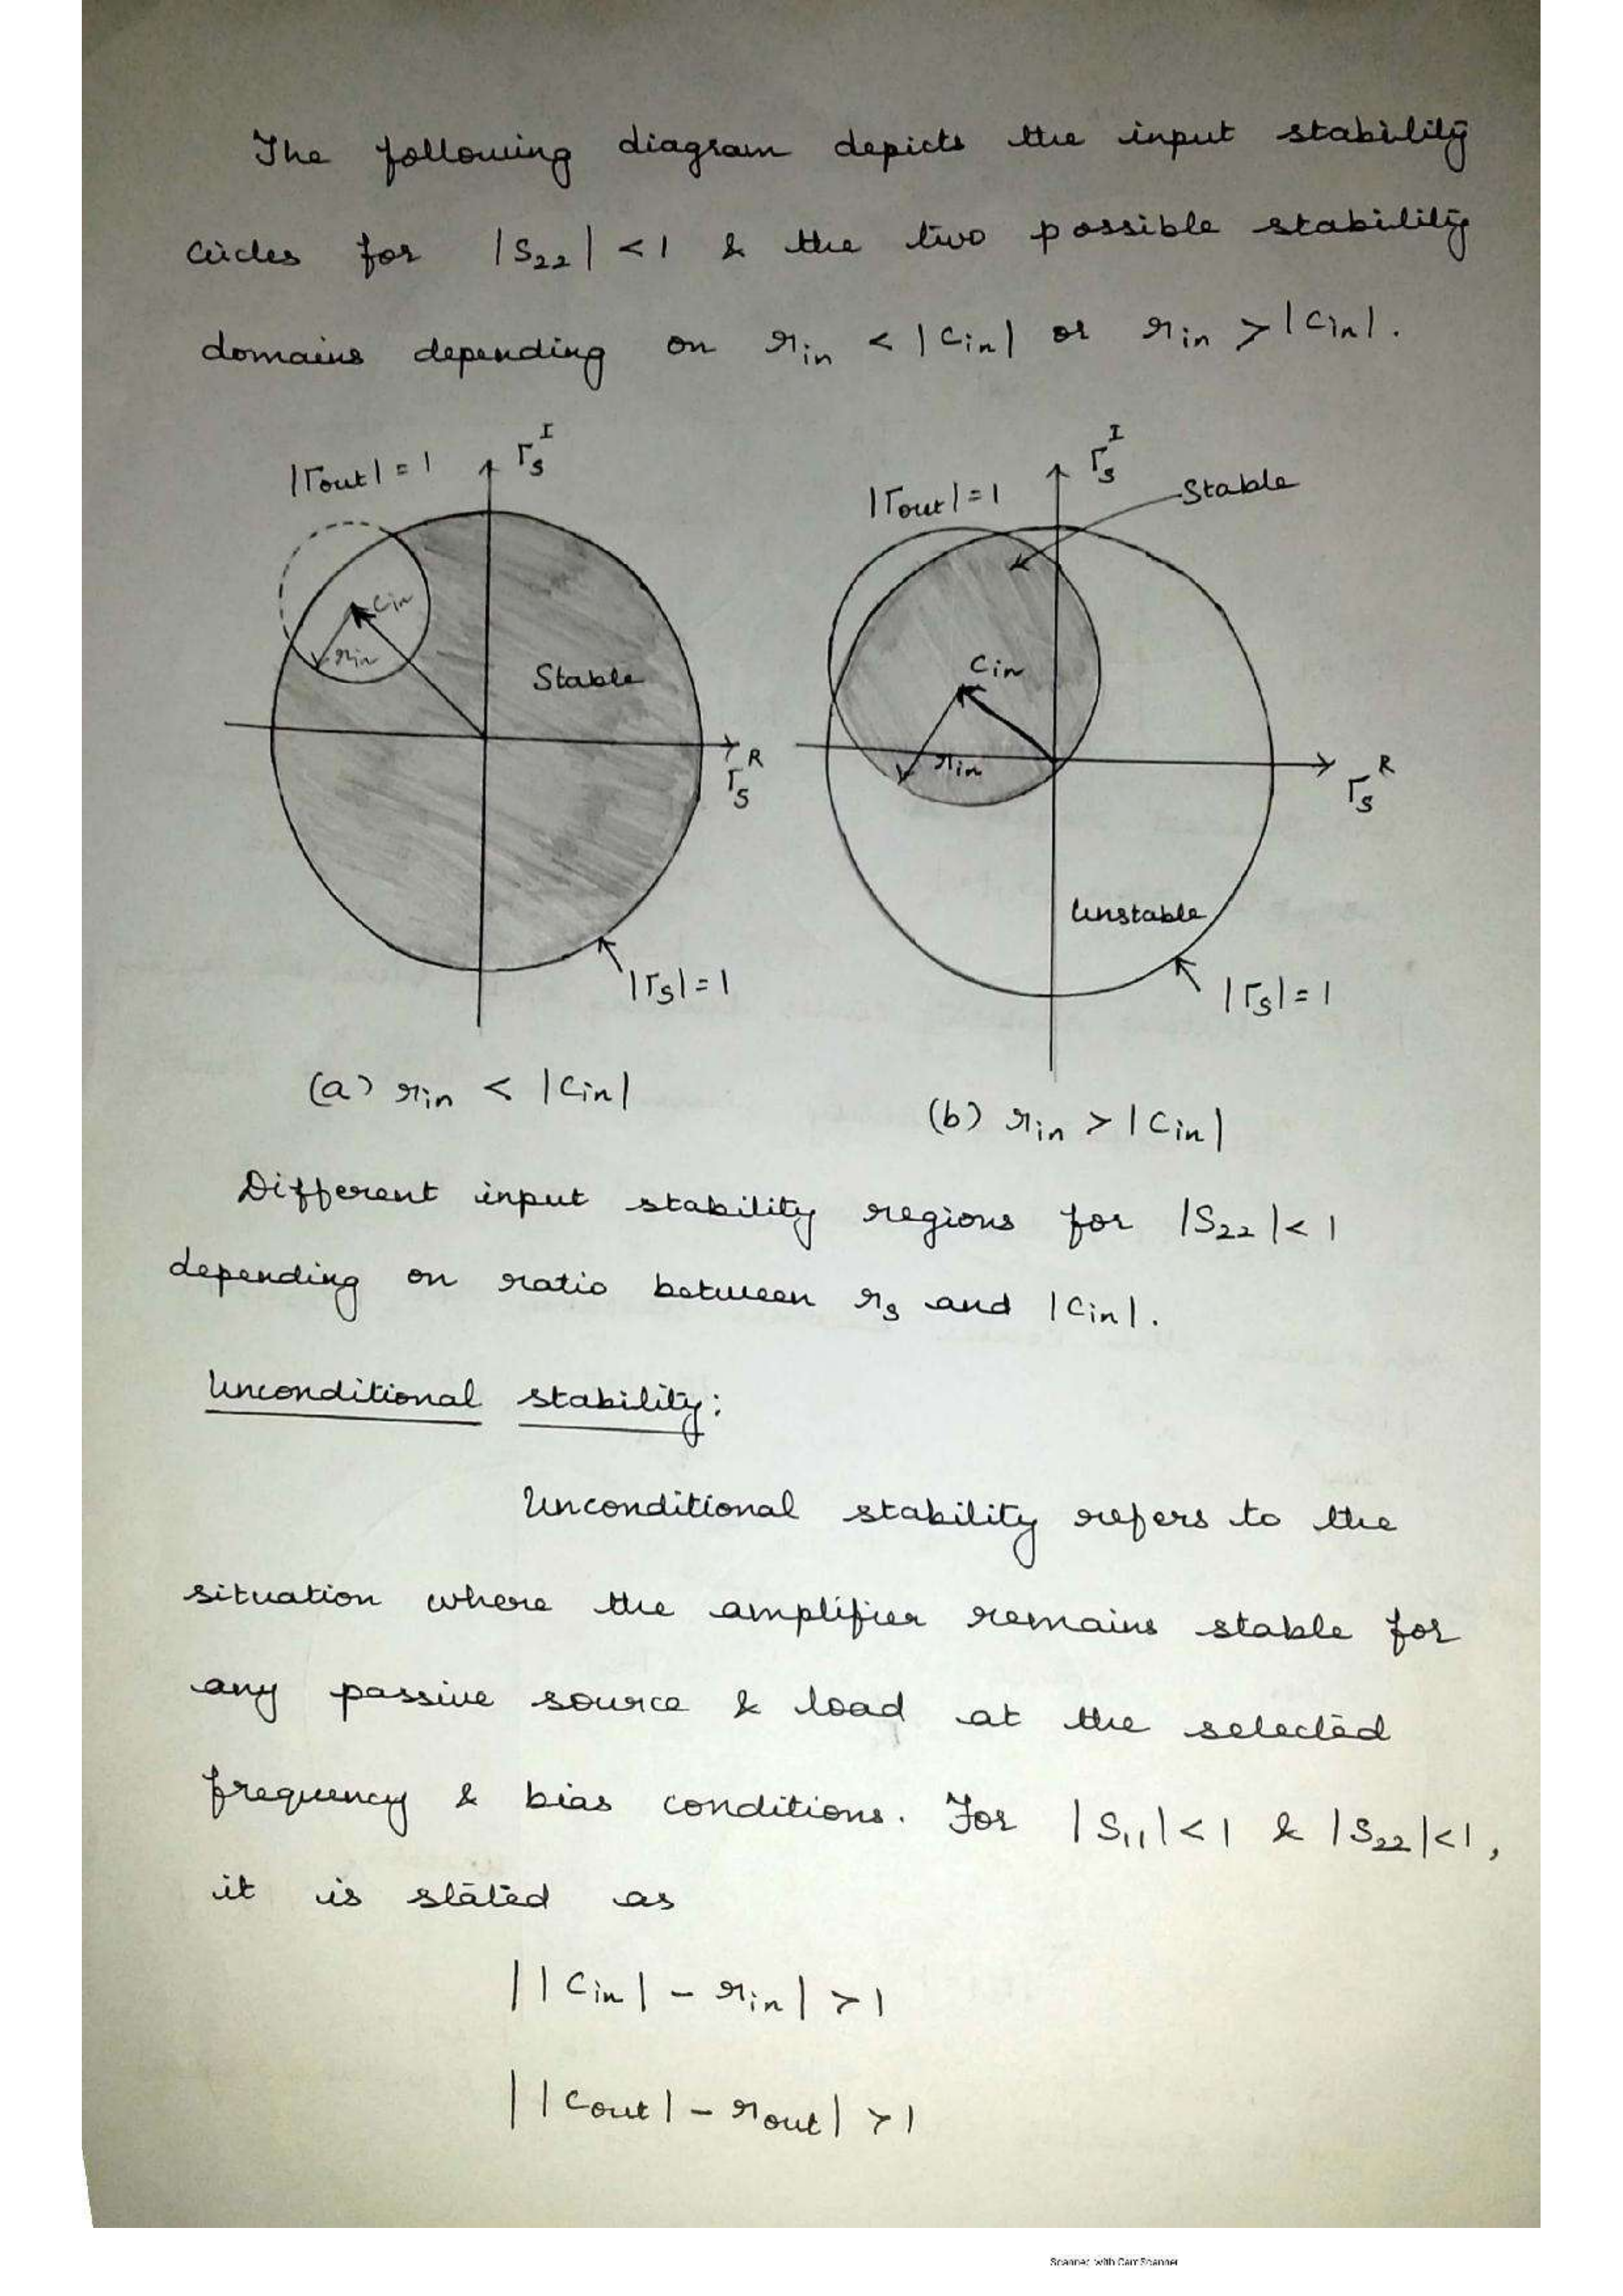 The following diagram depicts the input stability
circles for |S₂₂| < 1 & the two possible stability
domains depending on rin < |Cin| or rin > |Cin|.
|Γout| = 1
Γs^I
Cin
rin
Stable
Γs^R
|Γs| = 1
(a) rin < |Cin|
|Γout| = 1
Γs^I
Stable
Cin
rin
Γs^R
Unstable
|Γs| = 1
(b) rin > |Cin|
Different input stability regions for |S₂₂| < 1
depending on ratio between rs and |Cin|.
Unconditional stability:
Unconditional stability refers to the
situation where the amplifier remains stable for
any passive source & load at the selected
frequency & bias conditions. For |S₁₁| < 1 & |S₂₂| < 1,
it is stated as
||Cin| - rin| > 1
||Cout| - rout| > 1
Scanned with CamScanner